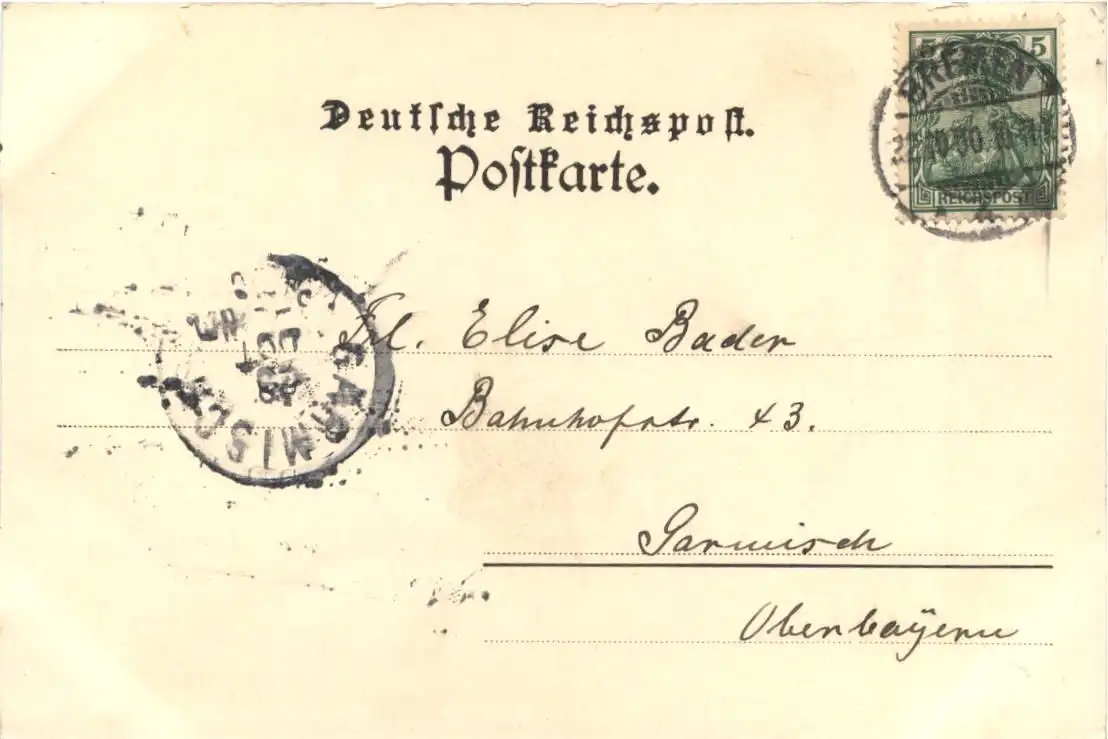 Deutsche Reichspost.
Postkarte.
5 5
REICHSPOST
BREMEN
GARMISCH
OCT
Frl. Elise Bader
Bahnhofstr. 43.
Garmisch
Oberbayern